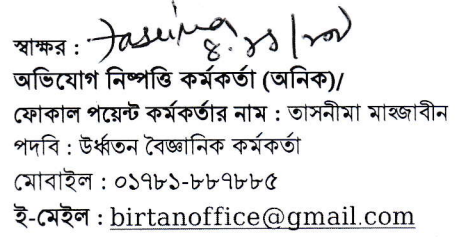 স্বাক্ষর :
অভিযোগ নিষ্পত্তি কর্মকর্তা (অনিক)/
ফোকাল পয়েন্ট কর্মকর্তার নাম : তাসনীমা মাহজাবীন
পদবি : উর্ধ্বতন বৈজ্ঞানিক কর্মকর্তা
মোবাইল : ০১৭৮১-৮৮৭৮৮৫
ই-মেইল : birtanoffice@gmail.com